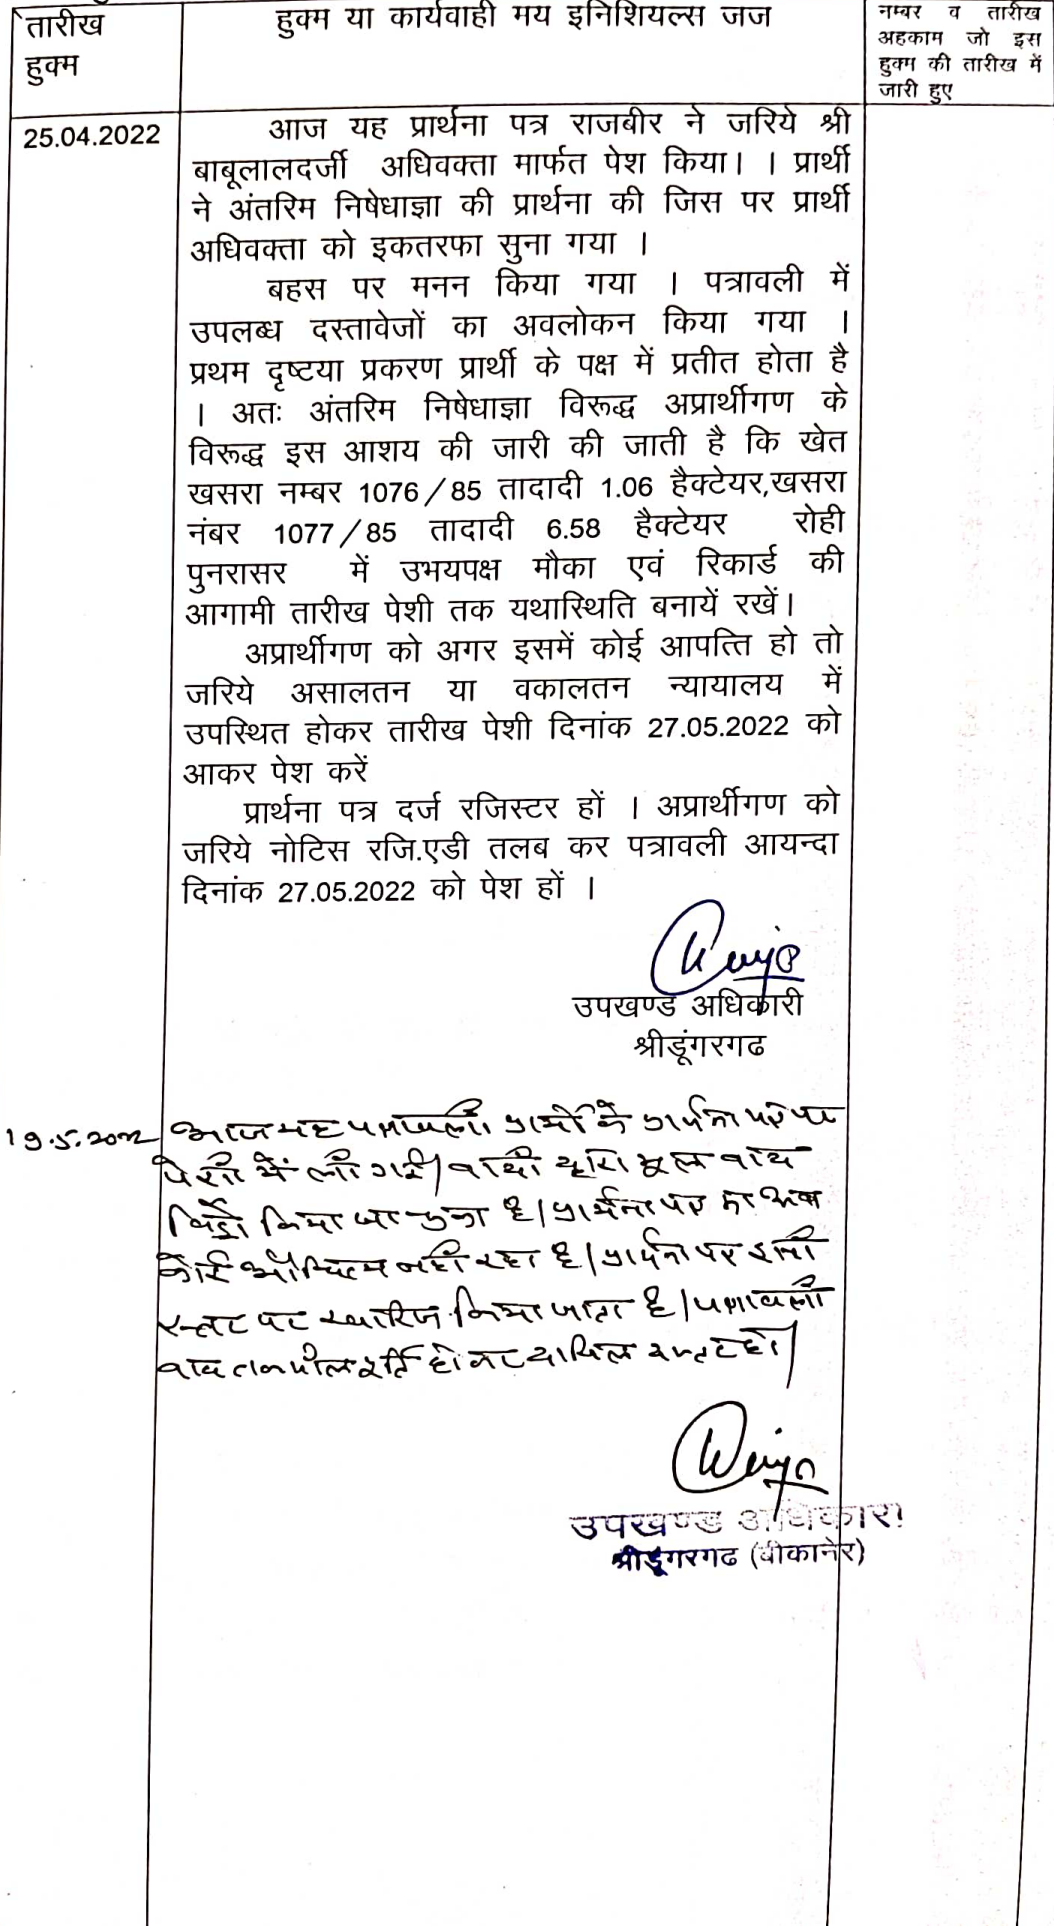 तारीख
हुक्म
हुक्म या कार्यवाही मय इनिशियल्स जज
नम्बर व तारीख
अहकाम जो इस
हुक्म की तारीख में
जारी हुए
25.04.2022
आज यह प्रार्थना पत्र राजबीर ने जरिये श्री
बाबूलालदर्जी अधिवक्ता मार्फत पेश किया। । प्रार्थी
ने अंतरिम निषेधाज्ञा की प्रार्थना की जिस पर प्रार्थी
अधिवक्ता को इकतरफा सुना गया ।
बहस पर मनन किया गया । पत्रावली में
उपलब्ध दस्तावेजों का अवलोकन किया गया ।
प्रथम दृष्टया प्रकरण प्रार्थी के पक्ष में प्रतीत होता है
। अतः अंतरिम निषेधाज्ञा विरूद्ध अप्रार्थीगण के
विरूद्ध इस आशय की जारी की जाती है कि खेत
खसरा नम्बर 1076/85 तादादी 1.06 हैक्टेयर,खसरा
नंबर 1077/85 तादादी 6.58 हैक्टेयर रोही
पुनरासर में उभयपक्ष मौका एवं रिकार्ड की
आगामी तारीख पेशी तक यथास्थिति बनायें रखें।
अप्रार्थीगण को अगर इसमें कोई आपत्ति हो तो
जरिये असालतन या वकालतन न्यायालय में
उपस्थित होकर तारीख पेशी दिनांक 27.05.2022 को
आकर पेश करें
प्रार्थना पत्र दर्ज रजिस्टर हों । अप्रार्थीगण को
जरिये नोटिस रजि.एडी तलब कर पत्रावली आयन्दा
दिनांक 27.05.2022 को पेश हों ।
उपखण्ड अधिकारी
श्रीडूंगरगढ
19.5.2022 आज यह पत्रावली प्रार्थी के प्रार्थना पत्र पर
पेशी में ली गई। वादी द्वारा मूल वाद
विड्रो किया जा चुका है। प्रार्थना पत्र का अब
कोई औचित्य नहीं रहा है। प्रार्थना पत्र इसी
स्तर पर खारिज किया जाता है। पत्रावली
बाद तकमील पूर्ति होकर दाखिल दफ्तर हो।
उपखण्ड अधिकारी
श्रीडूंगरगढ (बीकानेर)